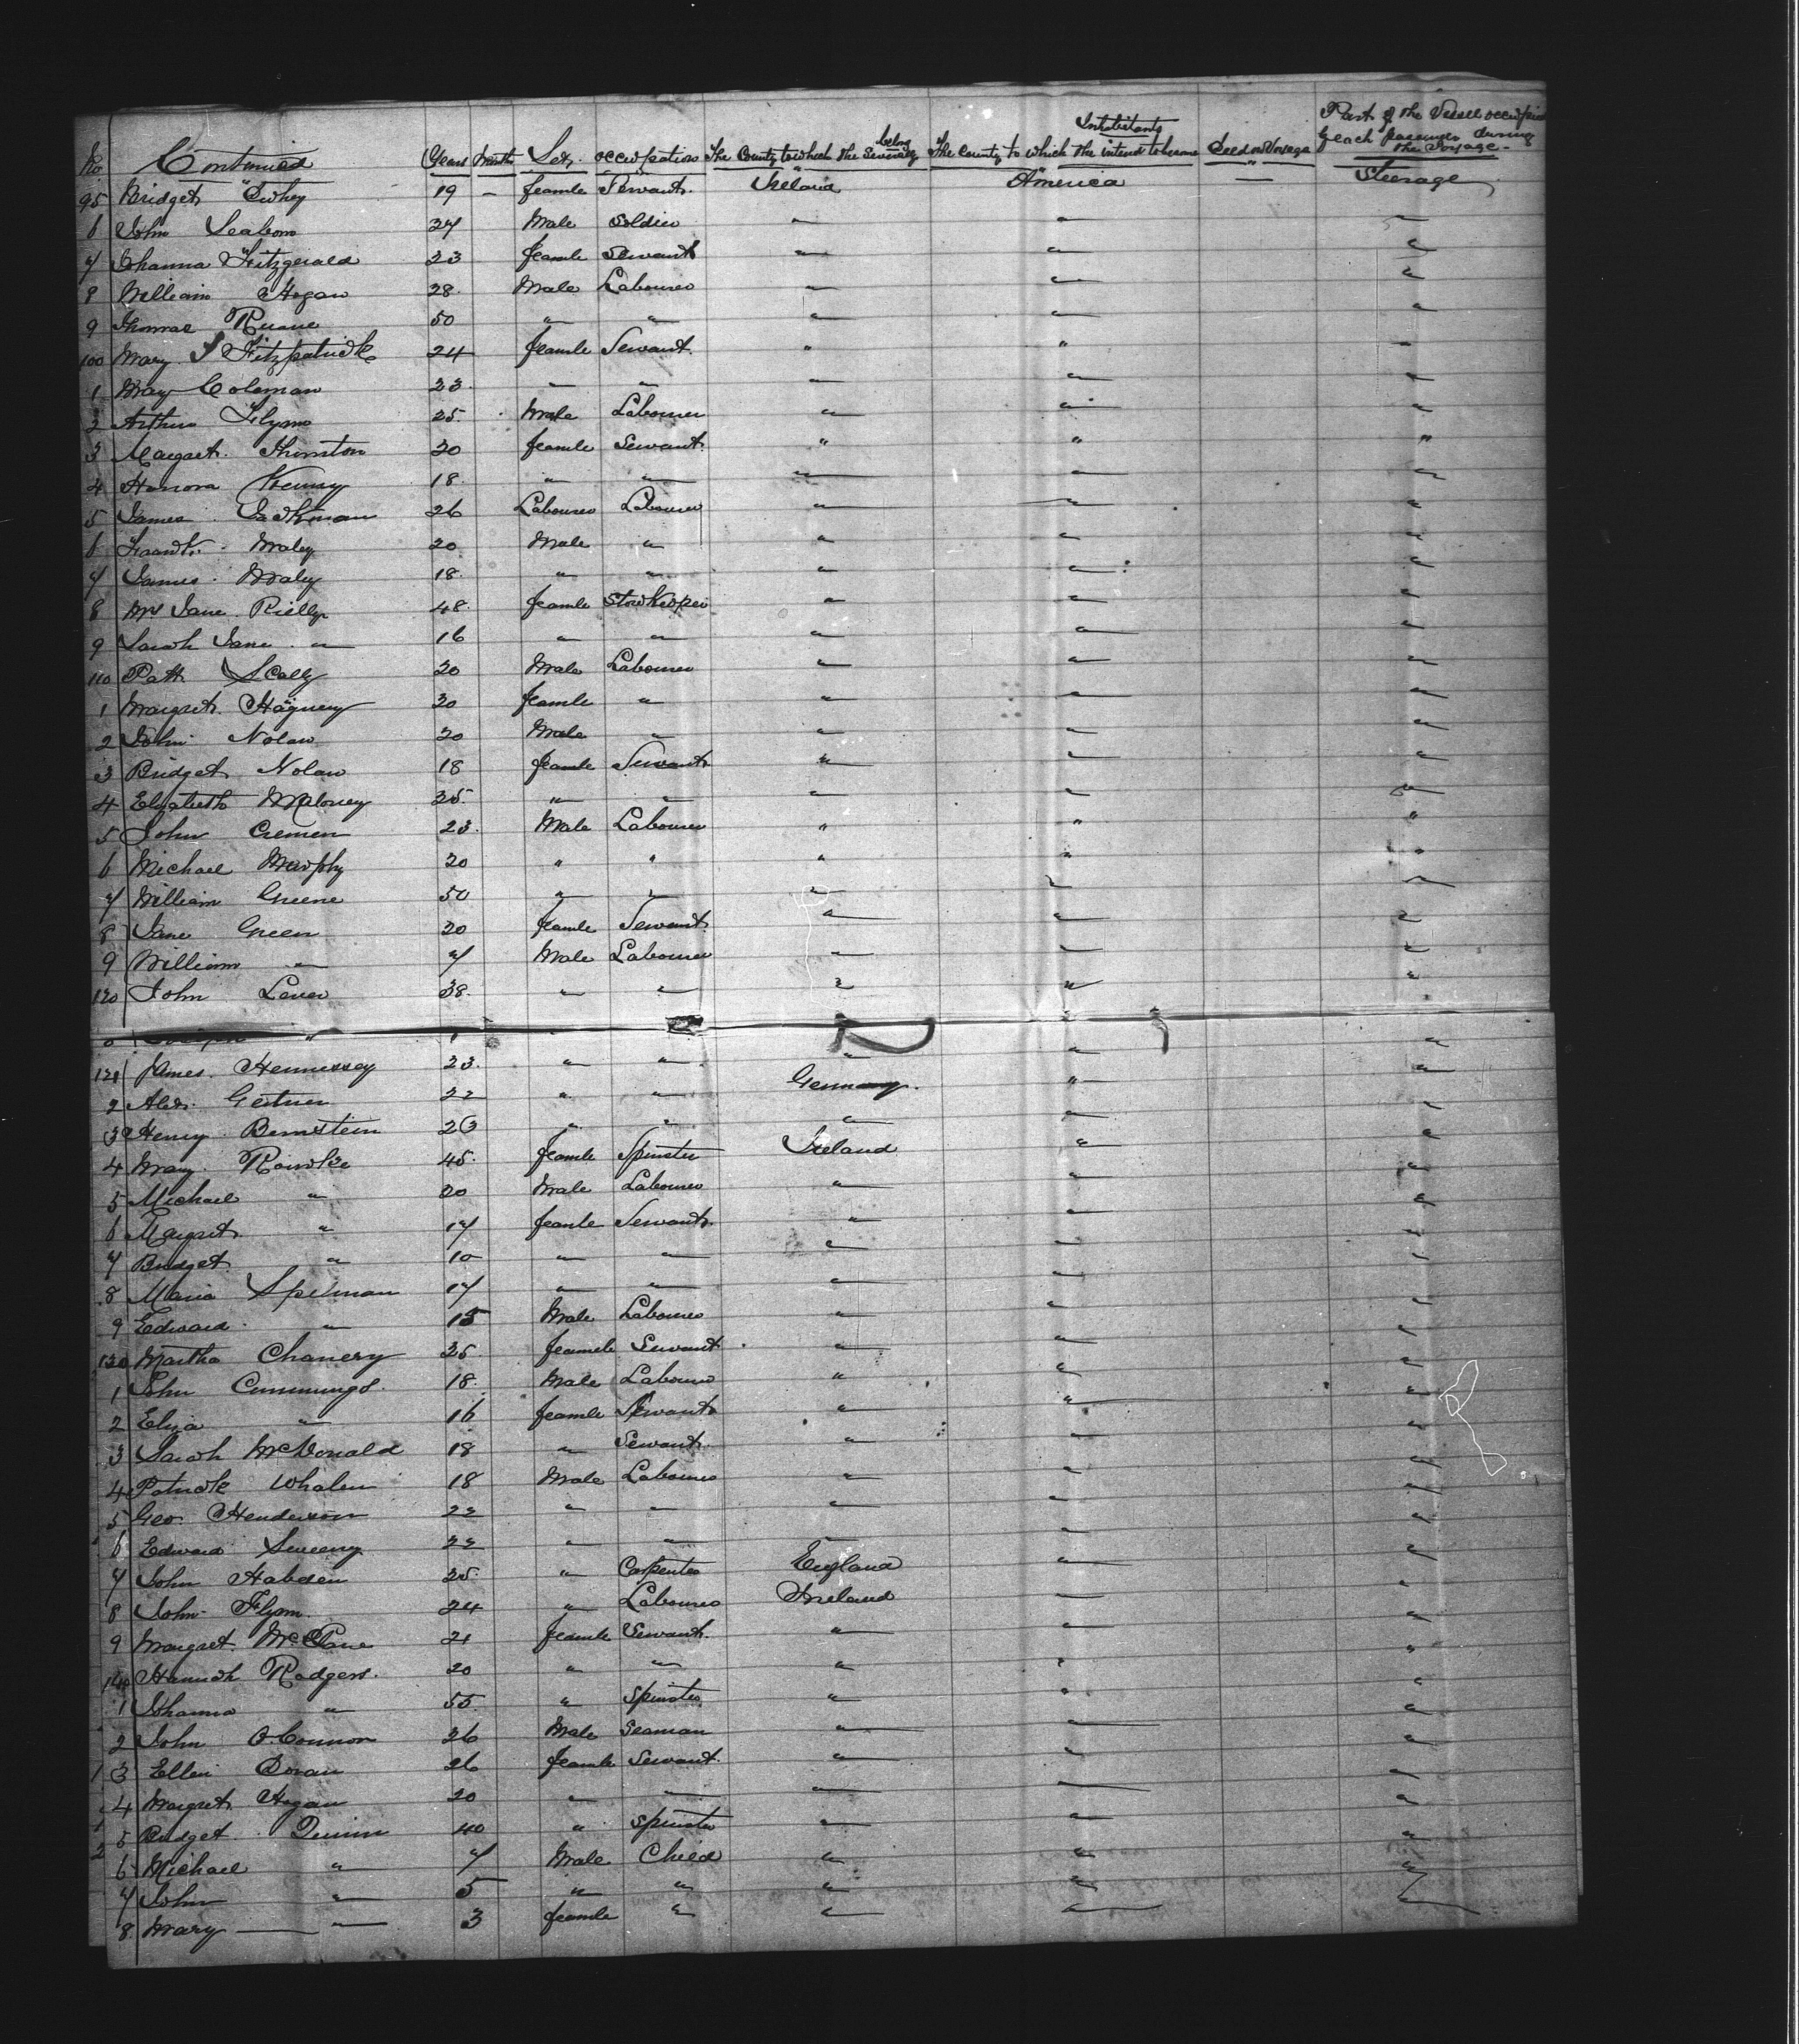 No Continued Years Month Sex occupation The County to which the Severally belong The County to which the intend to become Inhabitants Died on Voyage Part of the Vessel occupied by each passenger during the Voyage
95 Bridget 19 — feamle Servant Ireland America — Steerage
6 John 34 Male Soldier " " "
7 Johanna Fitzgerald 23 feamle Servant " " "
8 William Hogan 28 Male Labourer " " "
9 Thomas Ruane 50 " " " " "
100 Mary Fitzpatrick 24 feamle Servant " " "
1 May Coleman 23 " " " " "
2 Arthur Flynn 25 Male Labourer " " "
3 Margret Thornton 20 feamle Servant " " "
4 Honora 18 " " " " "
5 James 26 Labourer Labourer " " "
6 Frank Maley 20 Male " " " "
7 James Maley 18 " " " " "
8 Mrs Jane Rielly 48 feamle " " "
9 Sarah Jane " 16 " " " " "
110 Patk Scally 20 Male Labourer " " "
1 Margret 30 feamle " " " "
2 John Nolan 20 Male " " " "
3 Bridget Nolan 18 feamle Servant " " "
4 Elizabeth Maloney 35 " " " " "
5 John Cremen 23 Male Labourer " " "
6 Michael Murphy 20 " " " " "
7 William Greene 50 " " " " "
8 Jane Green 20 feamle Servant " " "
9 William " 7 Male Labourer " " "
120 John 38 " " " " "
121 James Hennessey 23 " " " " "
2 Alex 22 " " Germany " "
3 Henry Bernstein 26 " " " " "
4 Mary Rourke 45 feamle Spinster Ireland " "
5 Michael " 20 Male Labourer " " "
6 Margret " 17 feamle Servant " " "
7 Bridget " 10 " " " " "
8 Maria Spelman 17 " " " " "
9 Edward " 15 Male Labourer " " "
130 Martha Chanery 25 feamele Servant " " "
1 John Cummings 18 Male Labourer " " "
2 Eliza " 16 feamle Servant " " "
3 Sarah McDonald 18 " Servant " " "
4 Patrick Whalen 18 Male Labourer " " "
5 Geo. Henderson 22 " " " " "
6 Edward Sweeny 22 " " " " "
7 John Habden 25 " Carpenter England " "
8 John Flynn 24 " Labourer Ireland " "
9 Margret 21 feamle Servant " " "
140 Hannah Rodgers 20 " " " " "
1 Johanna " 55 " Spinster " " "
2 John O.Connor 26 Male Seaman " " "
3 Ellen Doran 26 feamle Servant " " "
4 Margret Hogan 20 " " " " "
5 Bridget Quinn 40 " Spinster " " "
6 Michael " 7 Male Child " " "
7 John " 5 " " " " "
8 Mary " 3 feamle " " " "